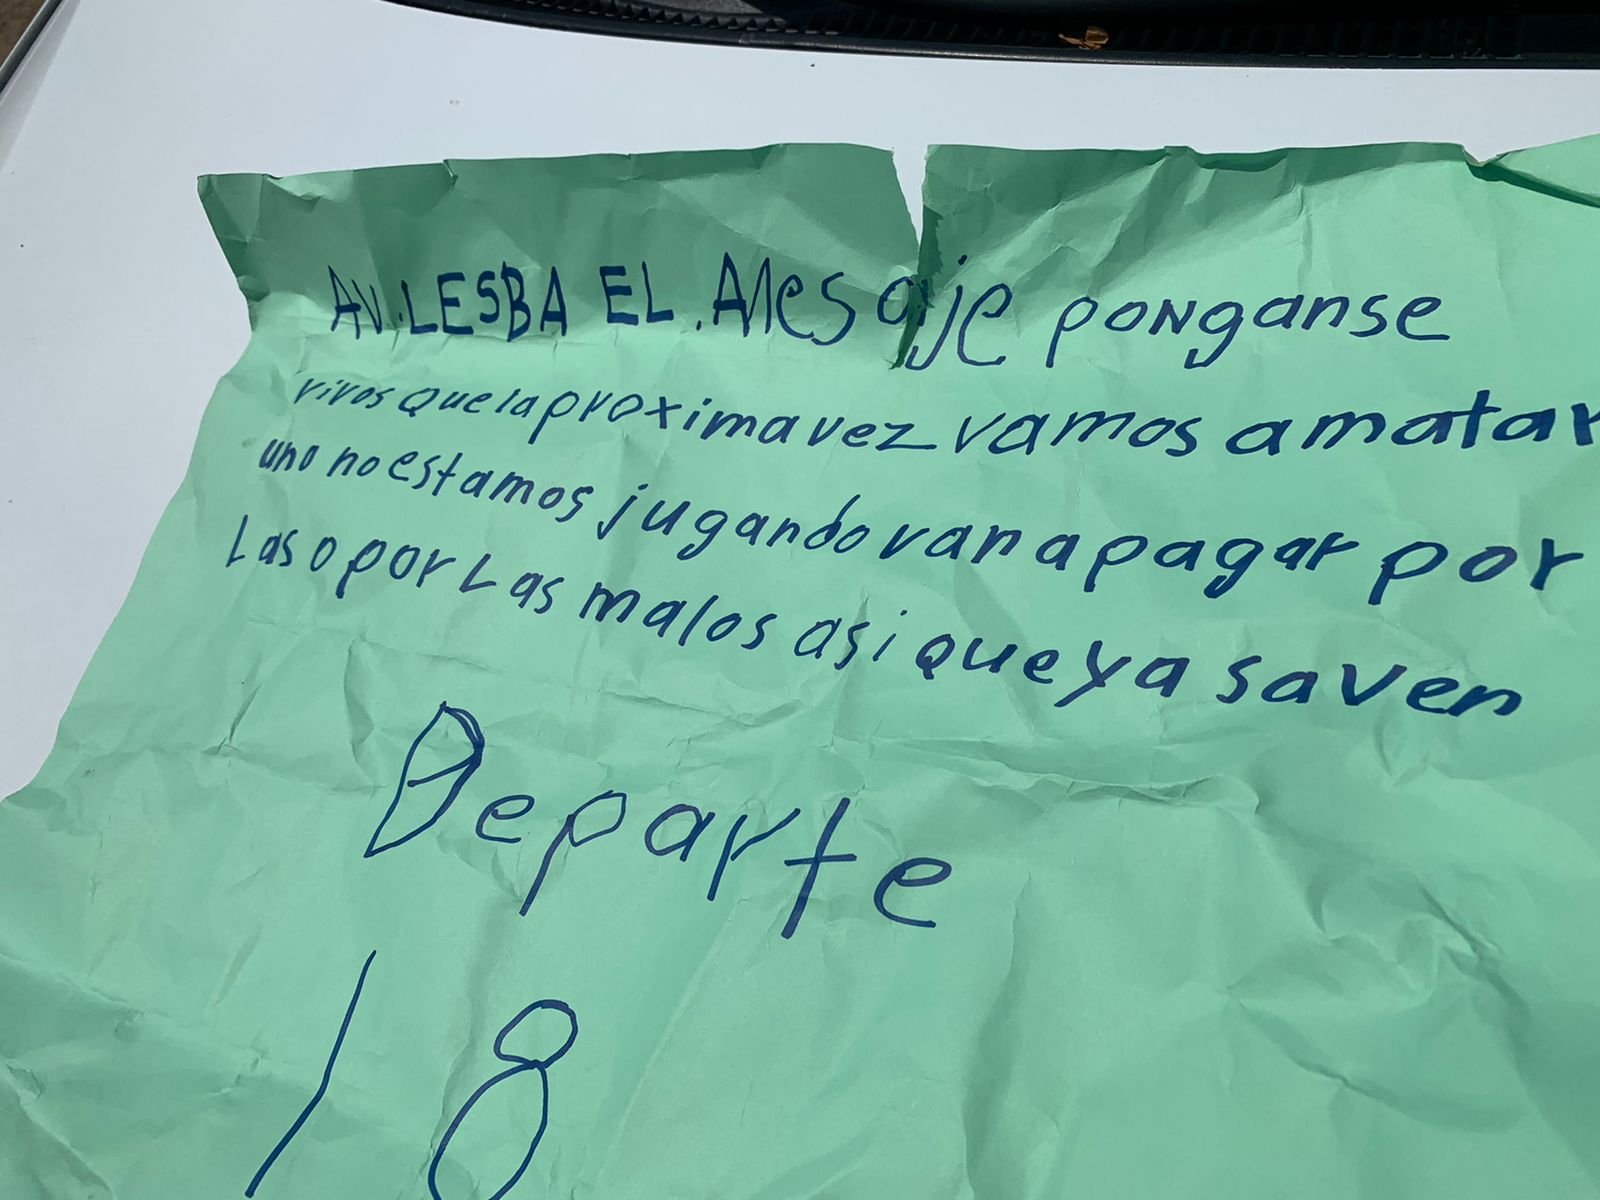 AV.LESBA EL.Mesaje PoNganse
vivos que la proxima vez vamos a matar
uno no estamos jugando van a pagar por
Las o por Las malos asi que ya saven
Departe
18